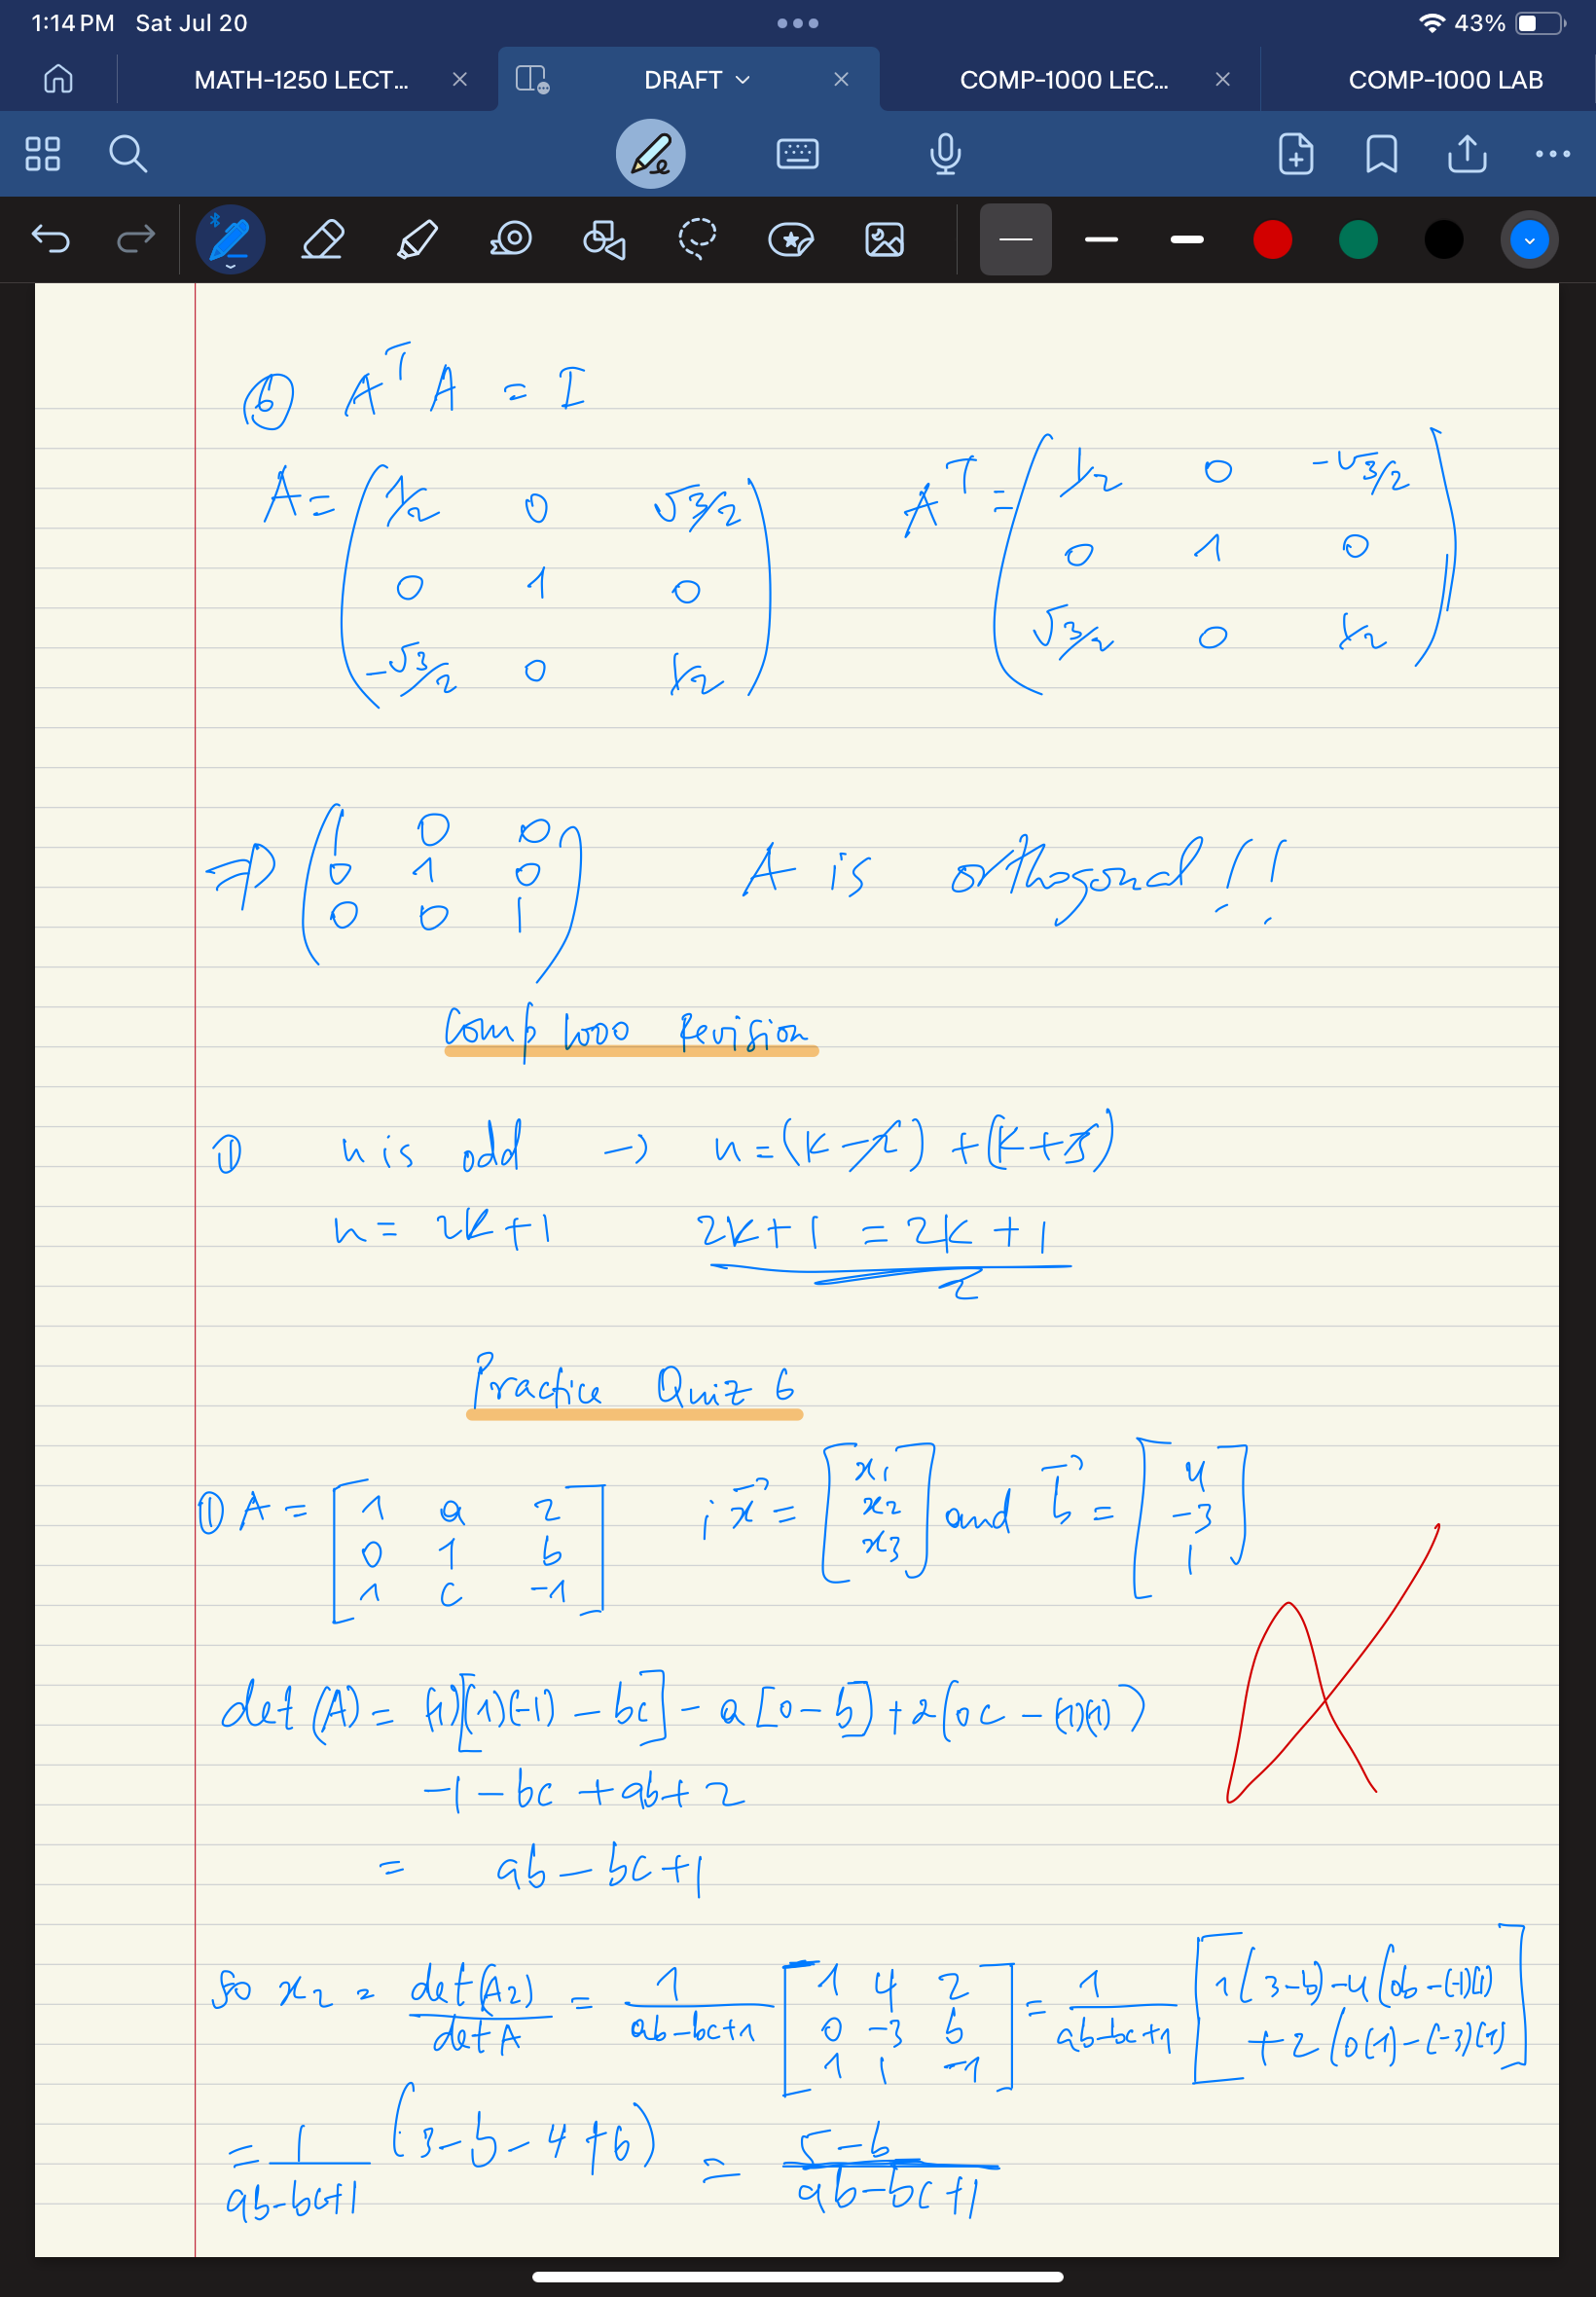 1:14 PM Sat Jul 20 43%
MATH-1250 LECT... DRAFT COMP-1000 LEC... COMP-1000 LAB
⑥ Aᵀ A = I
A = (1/2 0 √3/2 Aᵀ = (1/2 0 -√3/2
0 1 0 0 1 0
-√3/2 0 1/2) √3/2 0 1/2)
⇒ (1 0 0
0 1 0 A is orthogonal !!
0 0 1)
Comp 1000 Revision
① n is odd → n = (k - 2) + (k + 3)
n = 2k + 1 2k + 1 = 2k + 1
2
Practice Quiz 6
① A = [1 a 2 ; x⃗ = [x₁ and b⃗ = [4
0 1 b x₂ -3
1 c -1] x₃] 1]
det (A) = (1)[(1)(-1) - bc] - a [0 - b] + 2(0c - (1)(1))
-1 - bc + ab + 2
= ab - bc + 1
So x₂ = det(A₂)/det A = 1/(ab-bc+1) [1 4 2 = 1/(ab-bc+1) [1(3-b) -4(0b-(-1)(1)
0 -3 b + 2(0(1)-(-3)(1)]
1 1 -1]
= 1/(ab-bc+1) (3-b-4+6) = 5-b/(ab-bc+1)